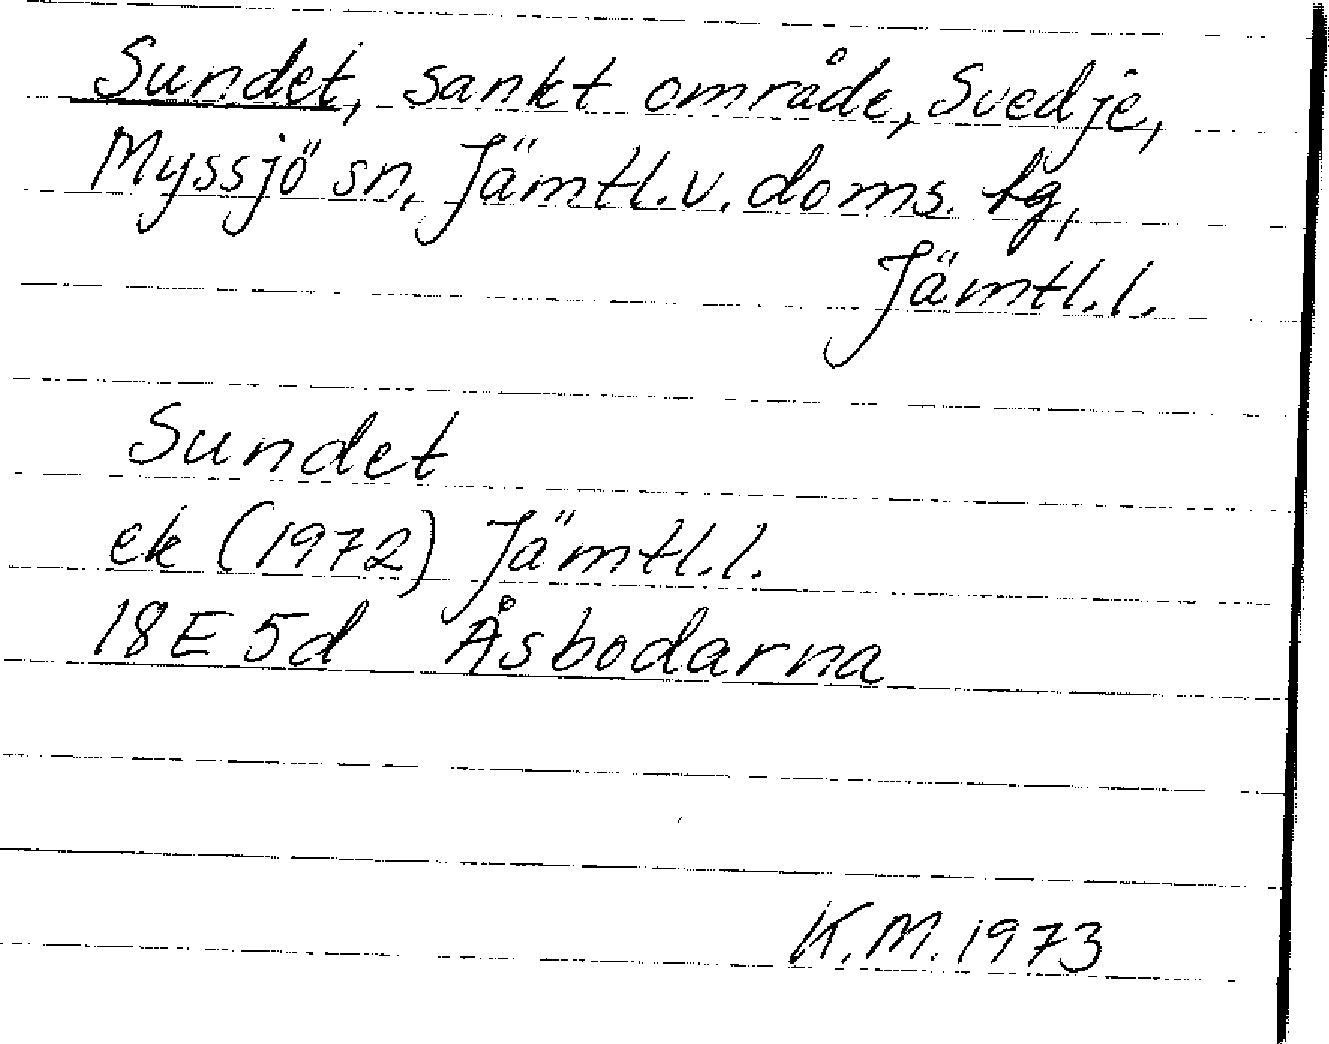 Sundet, sankt område, Svedje,
Myssjö sn, Jämtl.v.doms. tg,
Jämtl.l.
Sundet
ek (1972) Jämtl.l.
18E5d Åsbodarna
K.M.1973